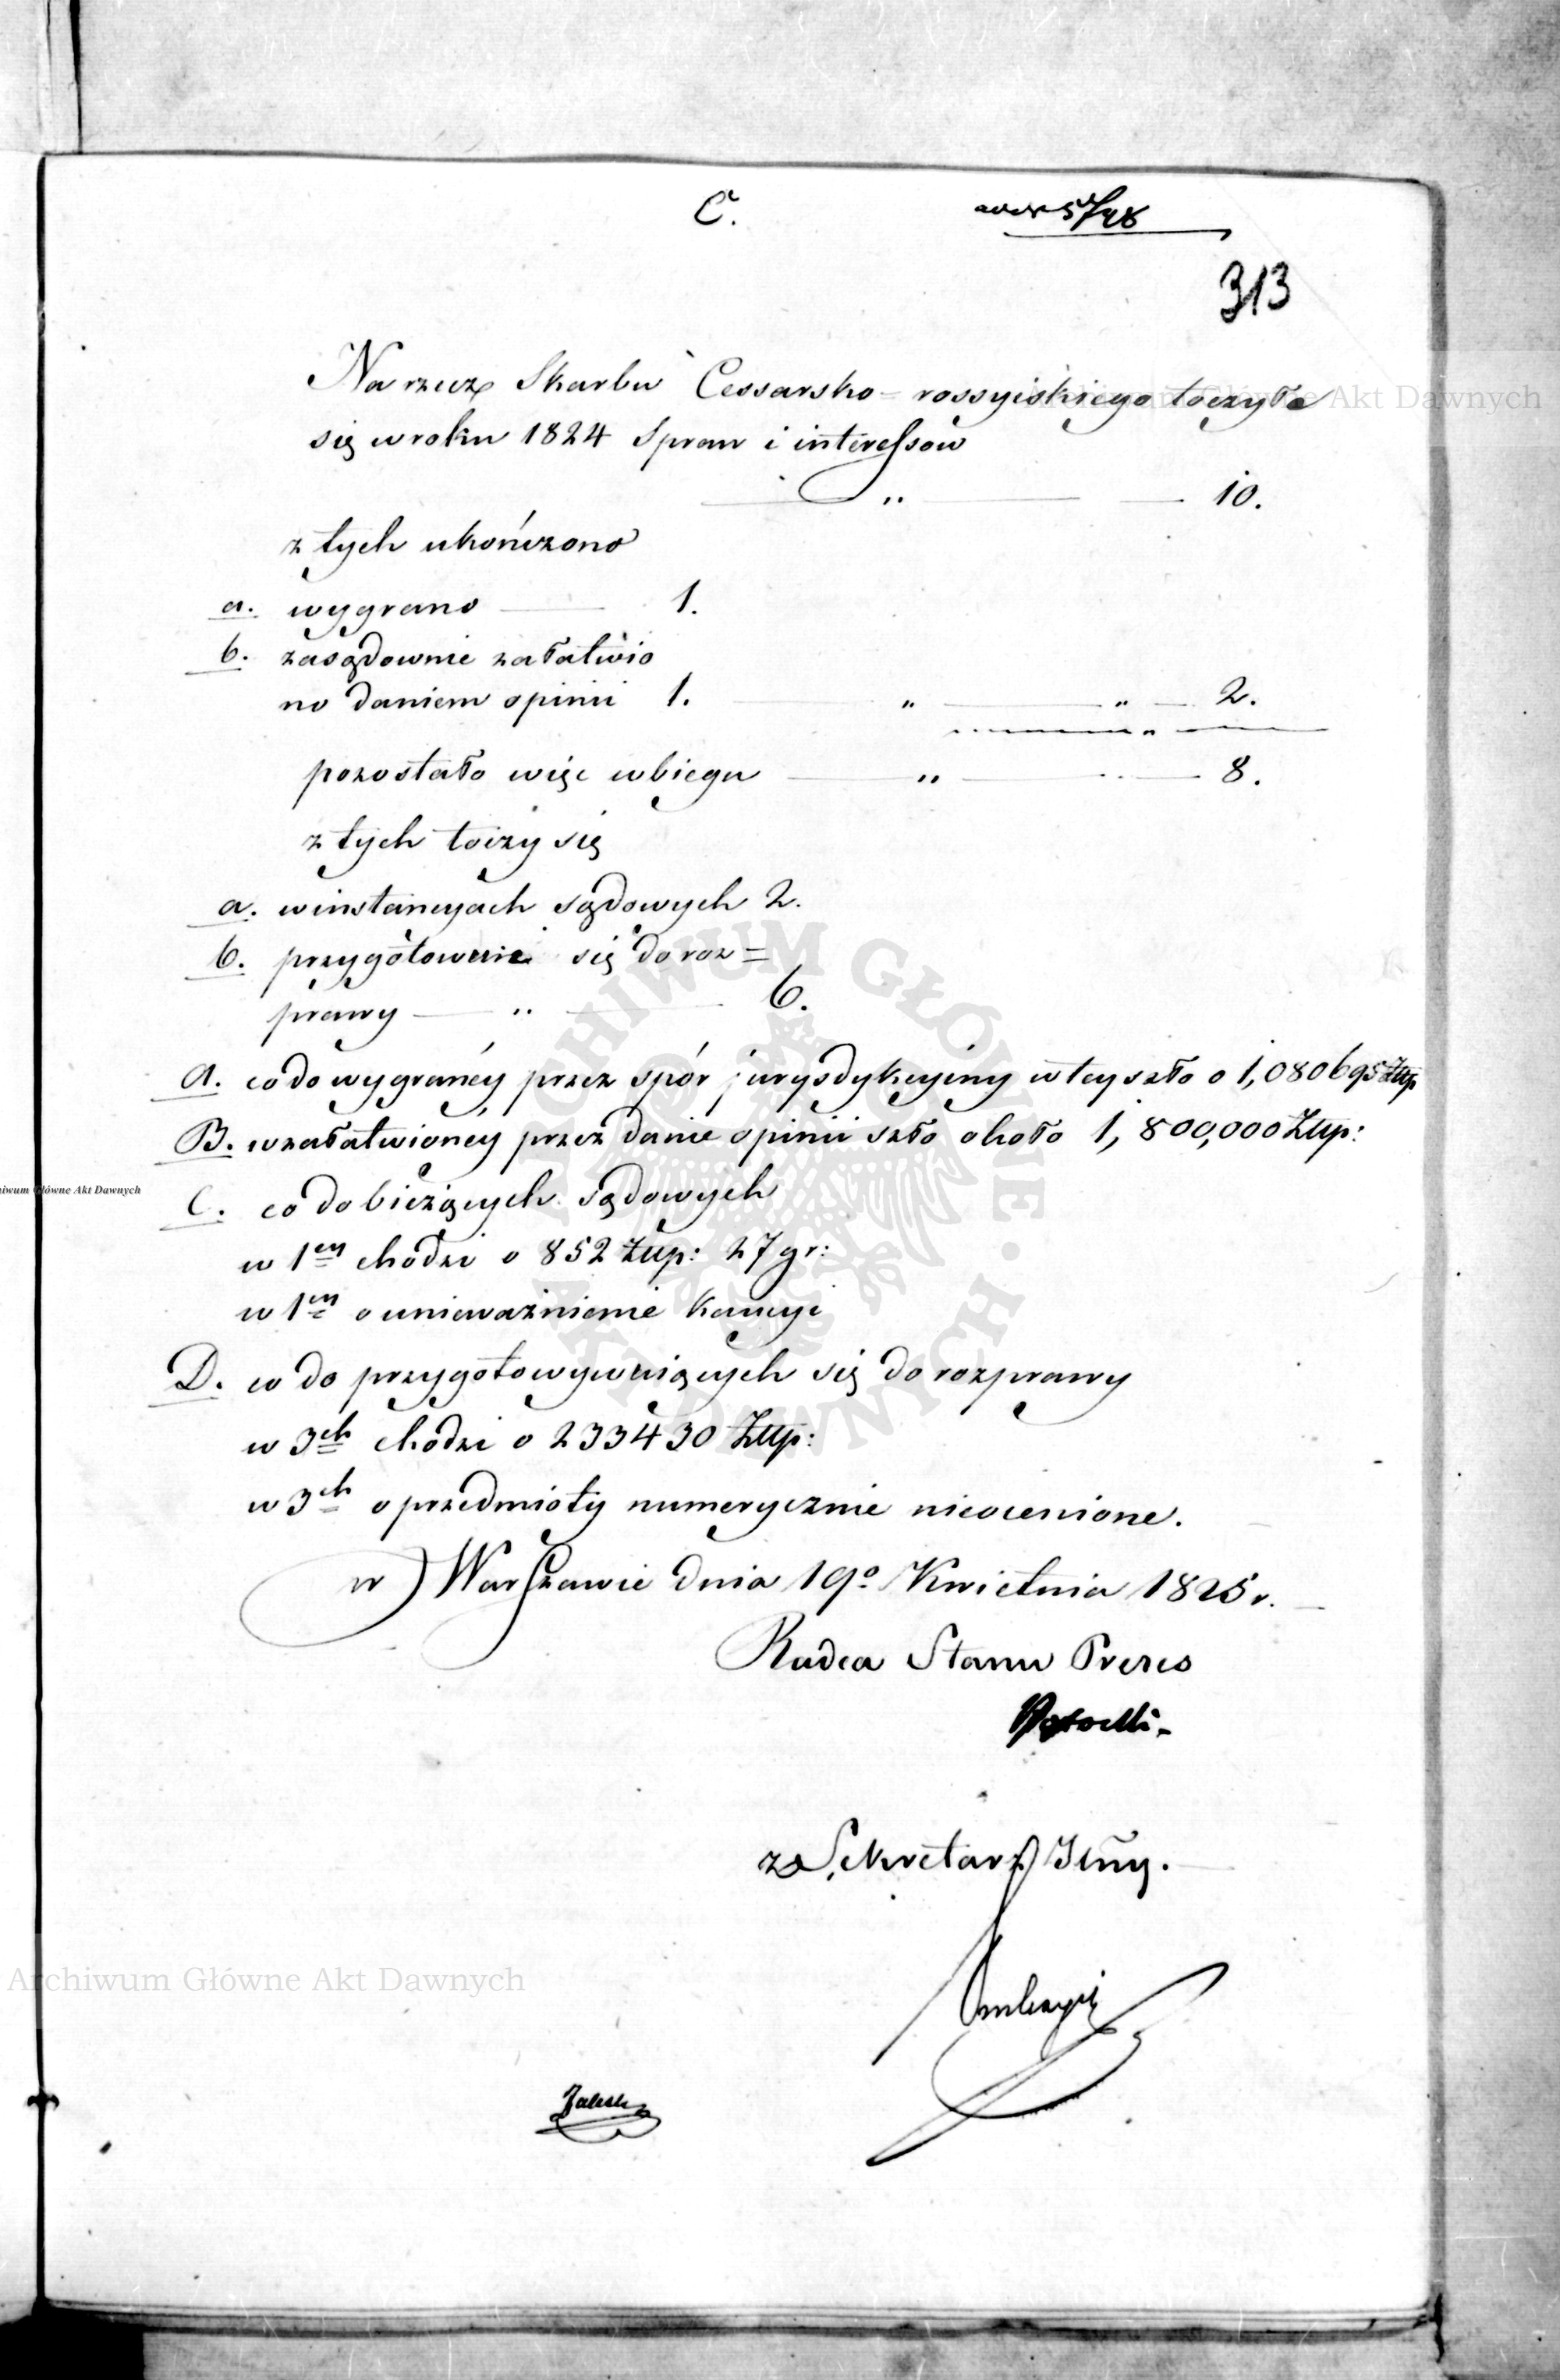 C.
313
Na rzecz Skarbu Cessarsko-rossyiskiego toczyło
się w roku 1824 Spraw i interessow
" 10.
z tych ukończono
a. wygrano 1.
b. zasądownie załatwio
no daniem opinii 1. " " 2.
pozostało więc w biegu " 8.
z tych toczy się
a. w instancyach sądowych 2.
b. przygotowuie się do roz=
prawy " 6.
A. co do wygranéy przez spór jurysdykcyiny w tey szło o 1,080695 Złlp
B. w załatwionéy przez danie opinii szło około 1,800,000 Złlp:
C. co do bieżących sądowych
w 1ey chodzi o 852 Złlp: 27 gr:
w 1ey o unieważnienie kaucyi
D. co do przygotowywuiących się do rozprawy
w 3ch chodzi o 233430 Złlp:
w 3ch o przedmioty numerycznie nieocenione.
w Warszawie dnia 19o Kwietnia 1825 r.
Radca Stanu Prezes
za Sekretarz Jlny.
Archiwum Główne Akt Dawnych
Archiwum Główne Akt Dawnych
ARCHIWUM GŁÓWNE AKT DAWNYCH